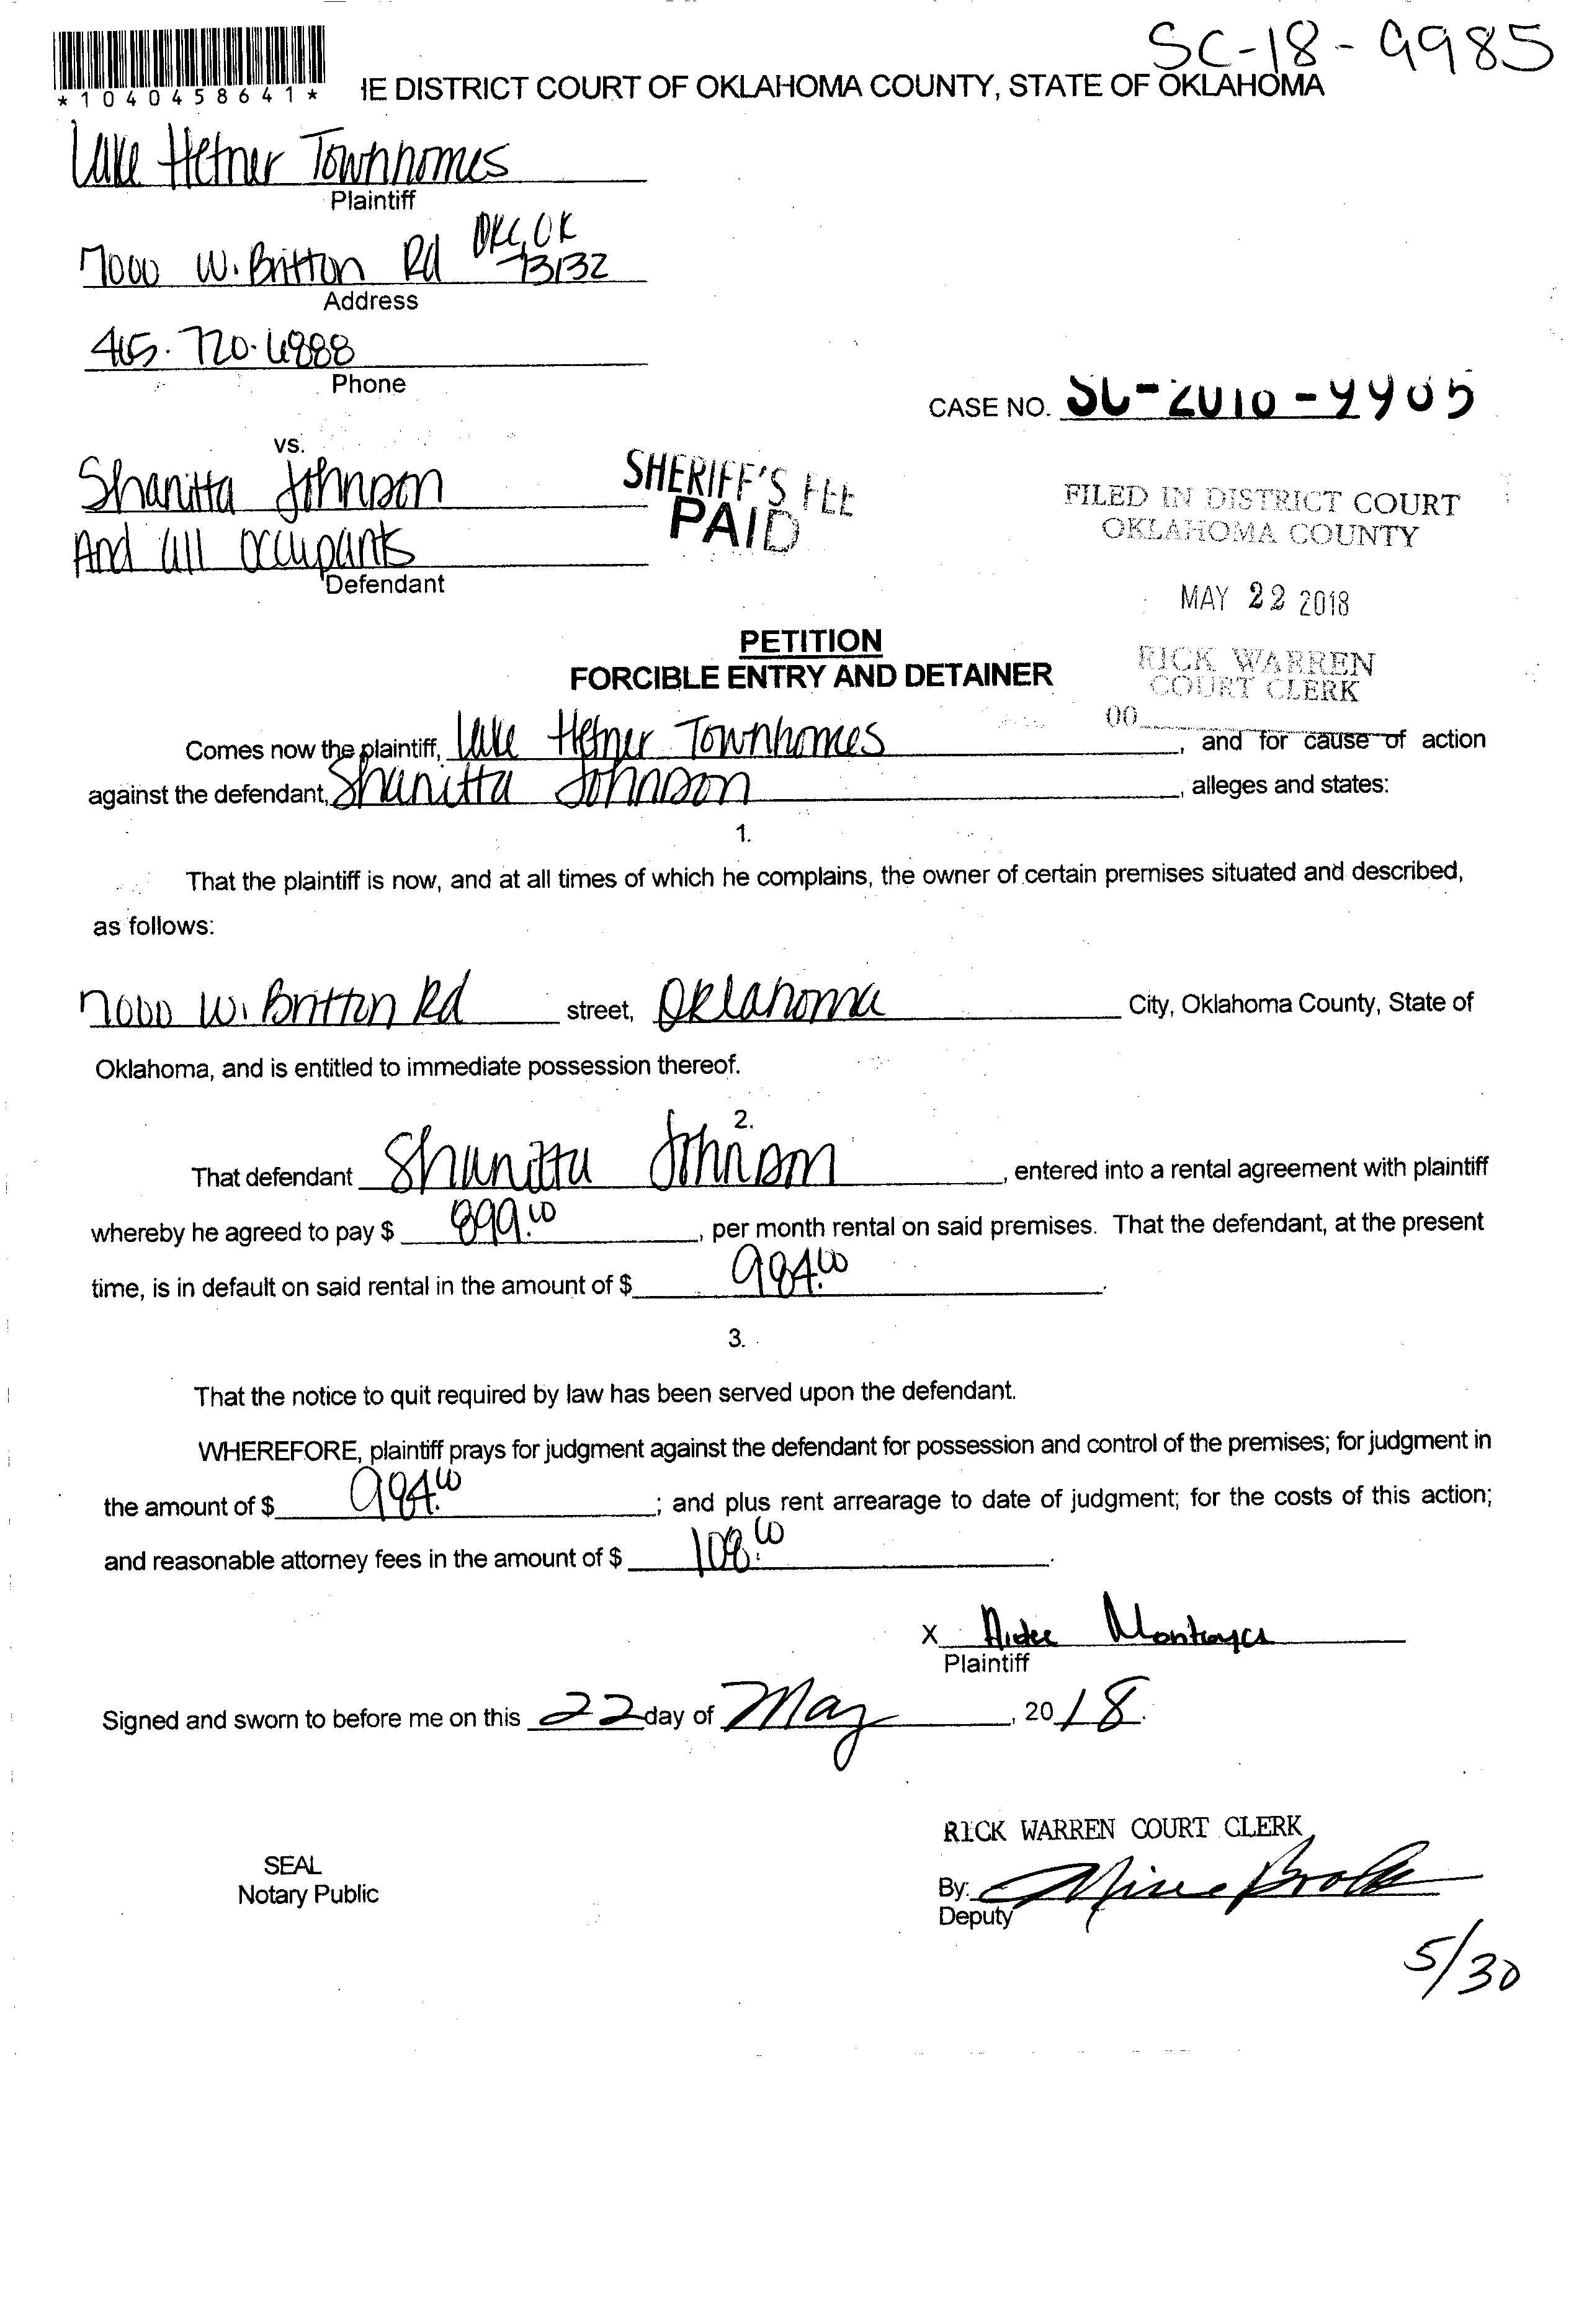 SC-18-9985
*1040458641*
HE DISTRICT COURT OF OKLAHOMA COUNTY, STATE OF OKLAHOMA
Lake Hefner Townhomes
Plaintiff
7000 W. Britton Rd OKC, OK 73132
Address
405.720.6888
Phone
CASE NO.
vs.
Shanitta Johnson
And all occupants
Defendant
SHERIFF'S FEE
PAID
FILED IN DISTRICT COURT
OKLAHOMA COUNTY
MAY 22 2018
RICK WARREN
COURT CLERK
00
PETITION
FORCIBLE ENTRY AND DETAINER
Comes now the plaintiff, Lake Hefner Townhomes, and for cause of action
against the defendant, Shanitta Johnson, alleges and states:
1.
That the plaintiff is now, and at all times of which he complains, the owner of certain premises situated and described,
as follows:
7000 W. Britton Rd street, Oklahoma City, Oklahoma County, State of
Oklahoma, and is entitled to immediate possession thereof.
2.
That defendant Shanitta Johnson, entered into a rental agreement with plaintiff
whereby he agreed to pay $ 899.00, per month rental on said premises. That the defendant, at the present
time, is in default on said rental in the amount of $ 984.00.
3.
That the notice to quit required by law has been served upon the defendant.
WHEREFORE, plaintiff prays for judgment against the defendant for possession and control of the premises; for judgment in
the amount of $ 984.00; and plus rent arrearage to date of judgment; for the costs of this action;
and reasonable attorney fees in the amount of $ 108.00.
X
Plaintiff
Signed and sworn to before me on this 22 day of May, 2018.
RICK WARREN COURT CLERK
SEAL
Notary Public
By:
Deputy
5/30